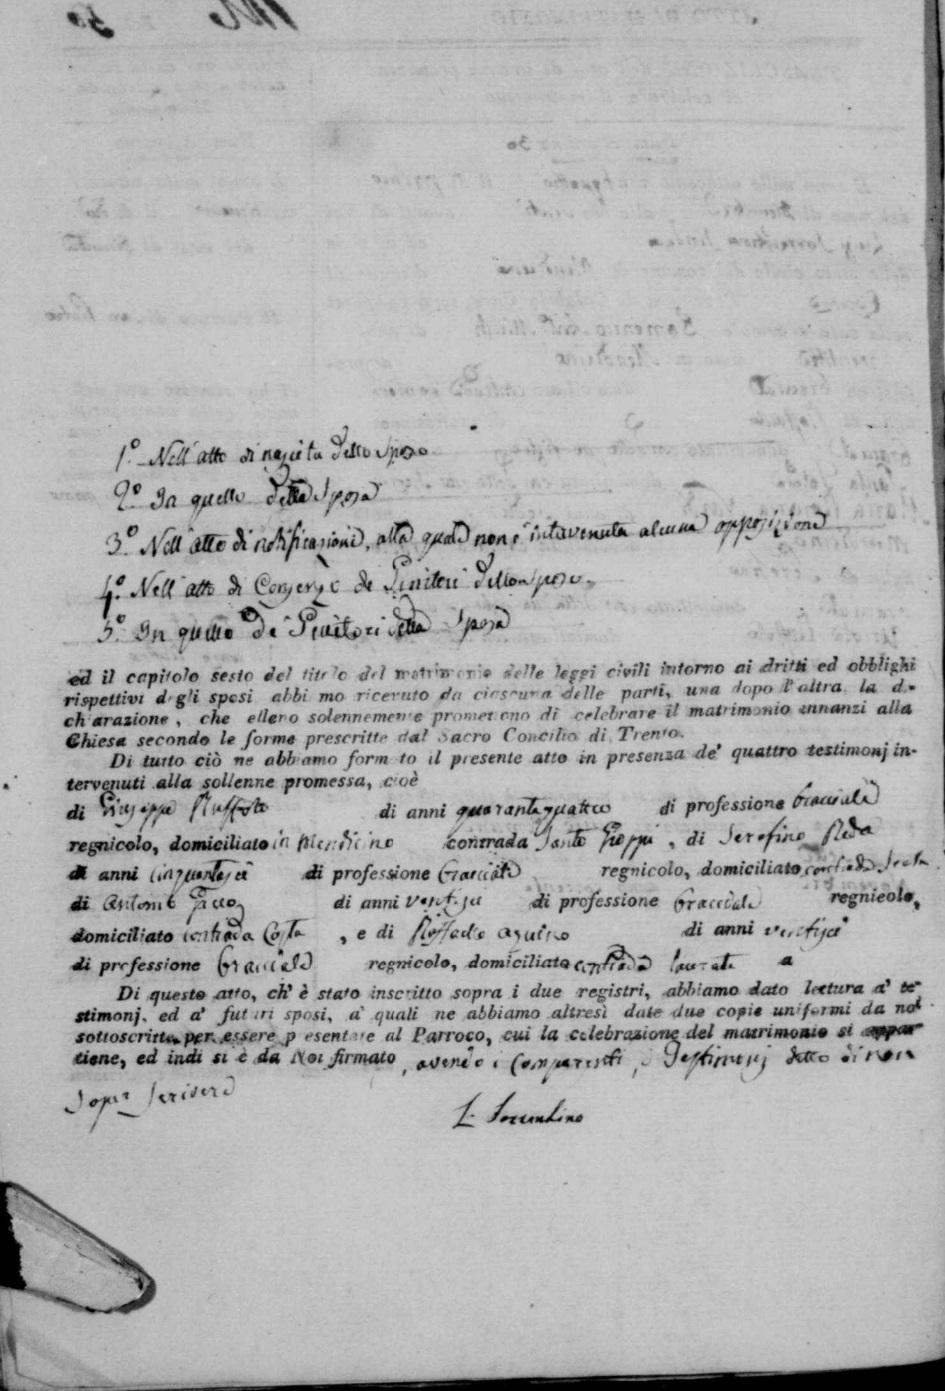 1.° Nell'atto di nascita dello Sposo
2.° In quello della Sposa
3.° Nell'atto di notificazione, alla quale non è intervenuta alcuna opposizione
4.° Nell'atto di Consenso de Genitori dello Sposo
5.° In quello de Genitori della Sposa
ed il capitolo sesto del titolo del matrimonio delle leggi civili intorno ai dritti ed obblighi
rispettivi degli sposi abbiamo ricevuto da ciascuna delle parti, una dopo l'altra la di-
chiarazione, che elleno solennemente promettono di celebrare il matrimonio innanzi alla
Chiesa secondo le forme prescritte dal Sacro Concilio di Trento.
Di tutto ciò ne abbiamo formato il presente atto in presenza de' quattro testimonj in-
tervenuti alla sollenne promessa, cioè
di Giuseppe di anni quarantaquattro di professione bracciale
regnicolo, domiciliato in Mendicino contrada Santo, di Serafino Reda
di anni cinquantasei di professione bracciale regnicolo, domiciliato contrada
di Antonio Greco di anni ventisei di professione bracciale regnicolo,
domiciliato contrada Costa, e di Raffaele Aquino di anni ventisei
di professione bracciale regnicolo, domiciliato contrada
Di questo atto, ch' è stato inscritto sopra i due registri, abbiamo dato lettura a' te-
stimonj, ed a' futuri sposi, a' quali ne abbiamo altresì date due copie uniformi da noi
sottoscritte per essere presentate al Parroco, cui la celebrazione del matrimonio si appar-
tiene, ed indi si è da Noi firmato, avendo i Comparenti, e Testimonj detto di non
saper scrivere